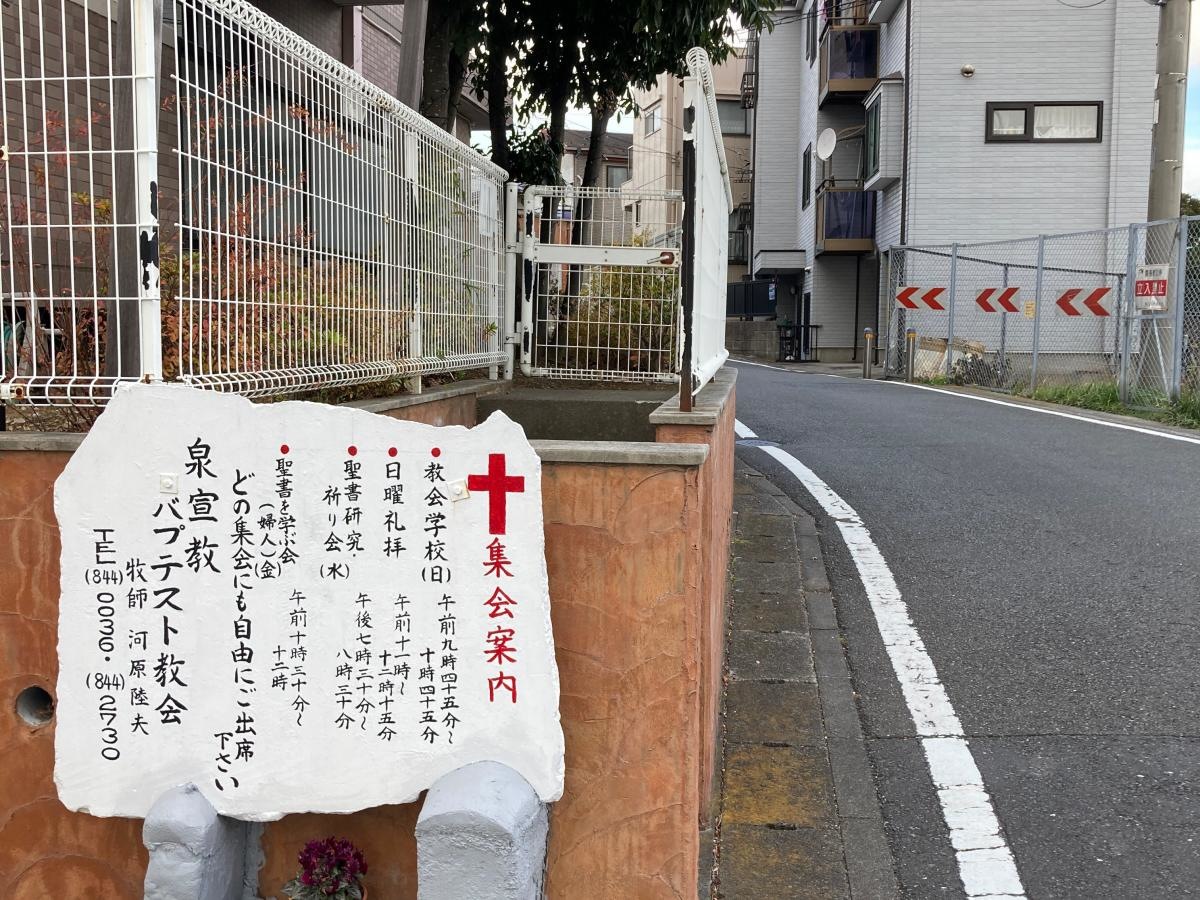 集会案内
教会学校(日) 午前九時四十五分~
十時四十五分
日曜礼拝 午前十一時~
十二時十五分
聖書研究・
祈り会(水) 午後七時三十分~
八時三十分
聖書を学ぶ会
(婦人)(金) 午前十時三十分~
十二時
どの集会にも自由にご出席
下さい
泉宣教
バプテスト教会
牧師 河原陸夫
TEL(844)0036・(844)2730
立入禁止